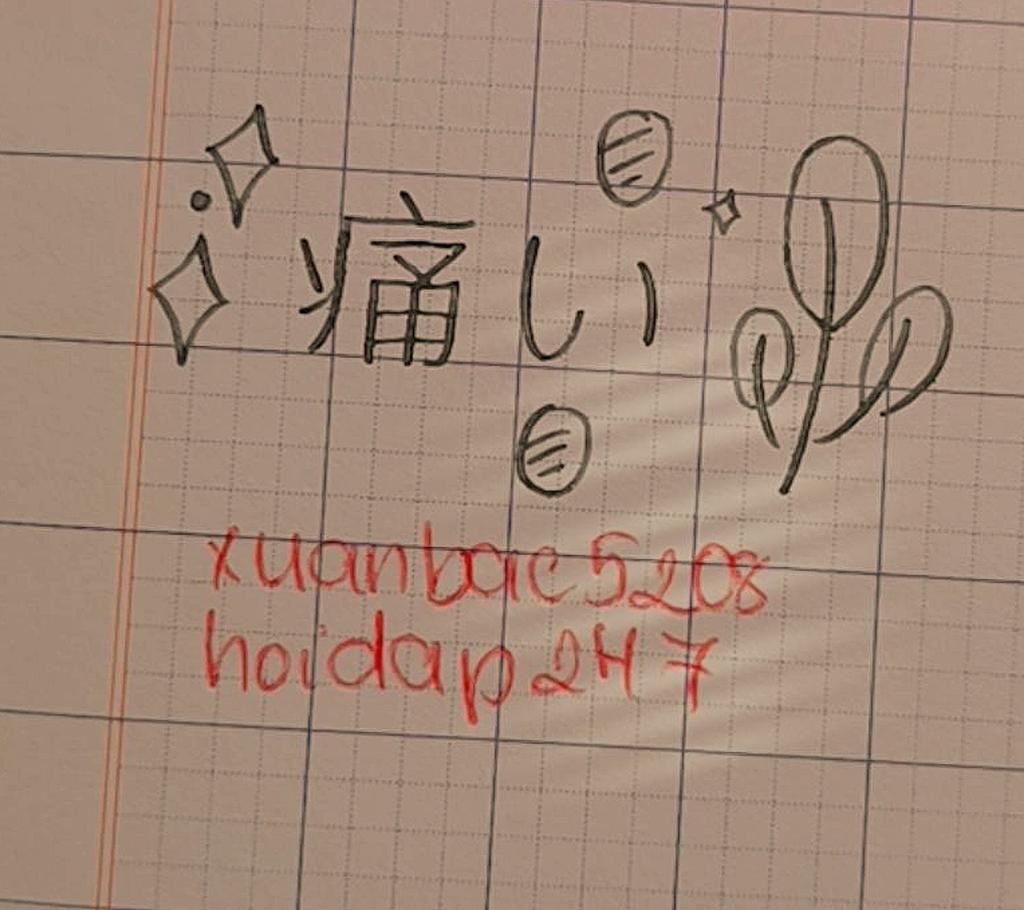 痛い
xuanbac5208
hoidap247